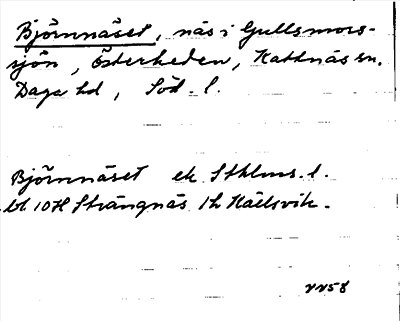 Björnnäset, näs i Gullsmors-
sjön, Österheden, Kattnäs sn.
Daga hd, Söd. l.
Björnnäset ek Sthlms. l.
bl 10H Strängnäs 1h Källsvik.
VV58